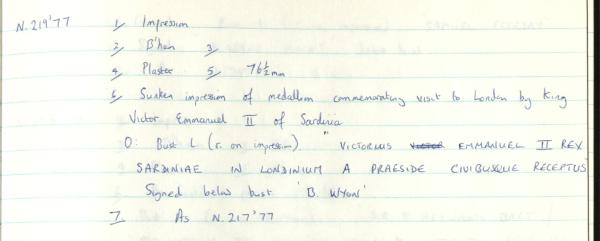 N.219'77 1/ Impression
2/ B'ham 3/
4/ Plaster 5/ 76½mm
6/ Sunken impression of medallion commemorating visit to London by King
Victor Emmanuel II of Sardinia
O: Bust L (r. on impression) " VICTORIUS VICTOR EMMANUEL II REX
SARDINIAE IN LONDINIUM A PRAESIDE CIVIBUSQUE RECEPTUS
Signed below bust 'B. WYON'
7 As N.217'77